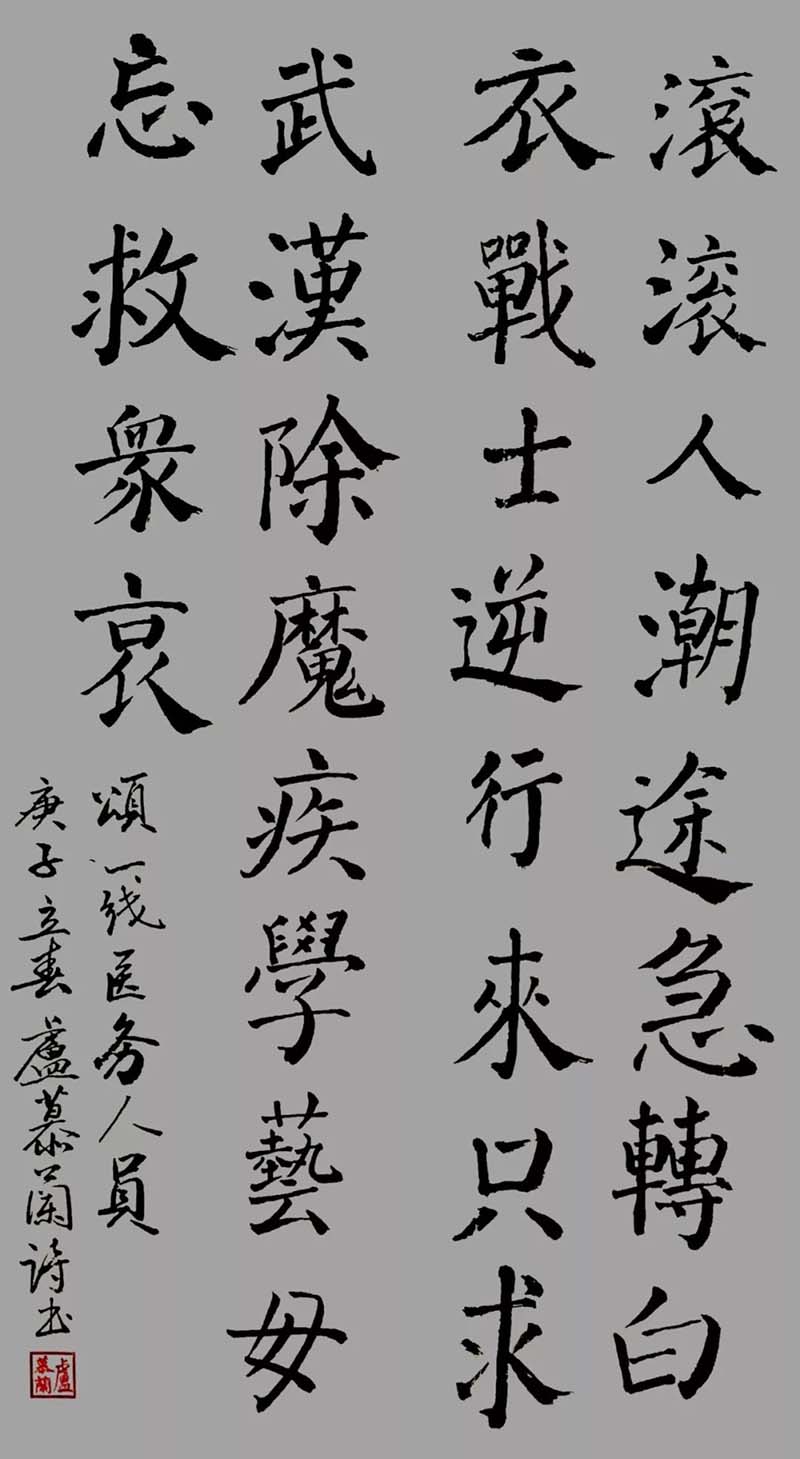 滾滾人潮途急轉白
衣戰士逆行來只求
武漢除魔疾學藝毋
忘救衆哀
頌一线医务人員
庚子立春盧慕蘭詩书
盧慕蘭